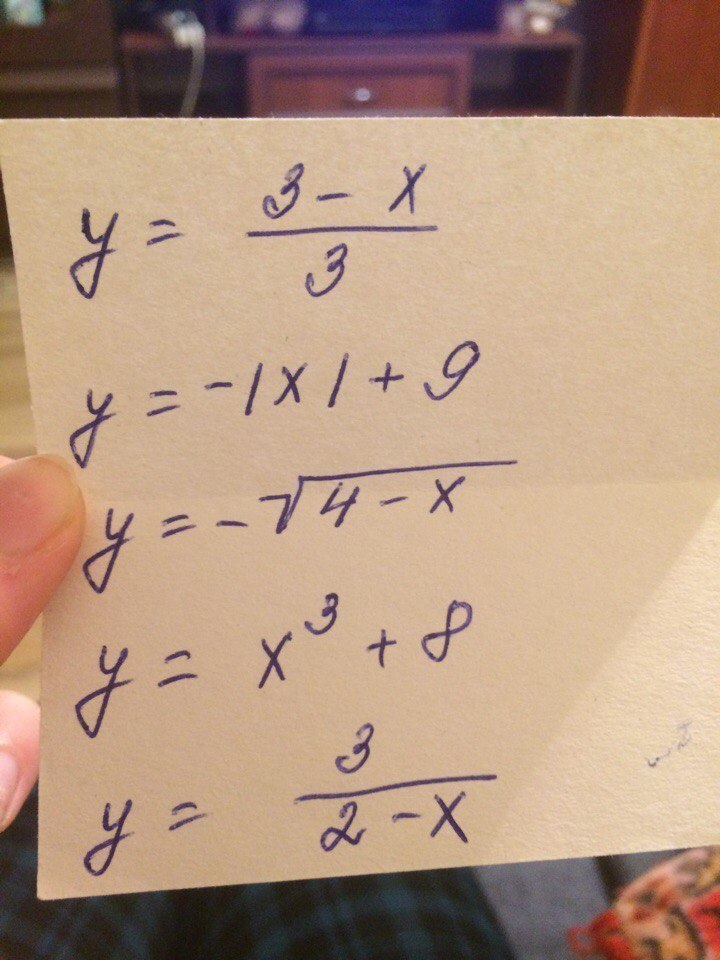 y = (3 - x)/3
y = -|x| + 9
y = -√(4 - x)
y = x³ + 8
y = 3/(2 - x)